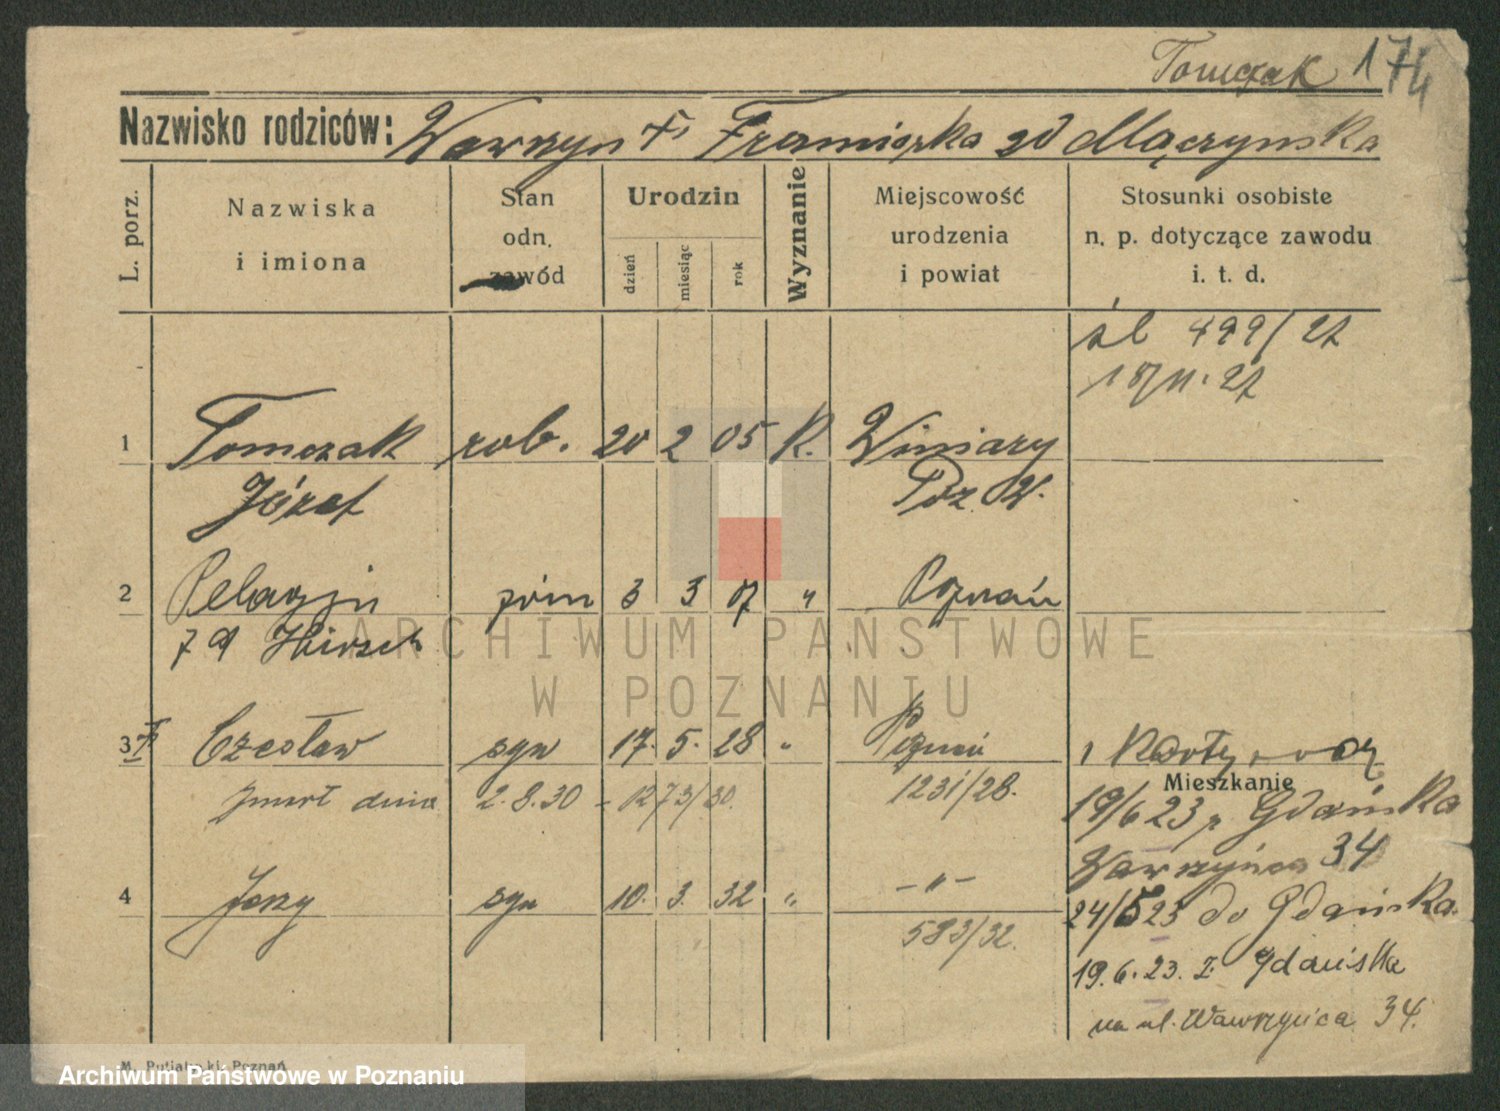 Tomczak 174
Nazwisko rodziców: Wawrzyn i Franciszka zd Mączyńska
L. porz.
Nazwiska i imiona
Stan odn. zawód
Urodzin
dzień miesiąc rok
Wyznanie
Miejscowość urodzenia i powiat
Stosunki osobiste n. p. dotyczące zawodu i. t. d.
śl 499/27
1 Tomczak rob. 20 2 05 K. Winiary
Józef Poz. W.
2 Pelagja żona 3 3 07 " Poznań
zd Hirsch
3 Czesław syn 17. 5. 28 " Poznań
zmarł dnia 2.8.30 - 1273/30. 1231/28.
Mieszkanie
19/6 23 z Gdańska
Wawrzyńca 34
4 Jerzy syn 10. 3. 32 " -"-
24/5 23 do Gdańska.
583/32.
19.6.23. z Gdańska
na ul. Wawrzyńca 34.
ARCHIWUM PAŃSTWOWE
W POZNANIU
Archiwum Państwowe w Poznaniu